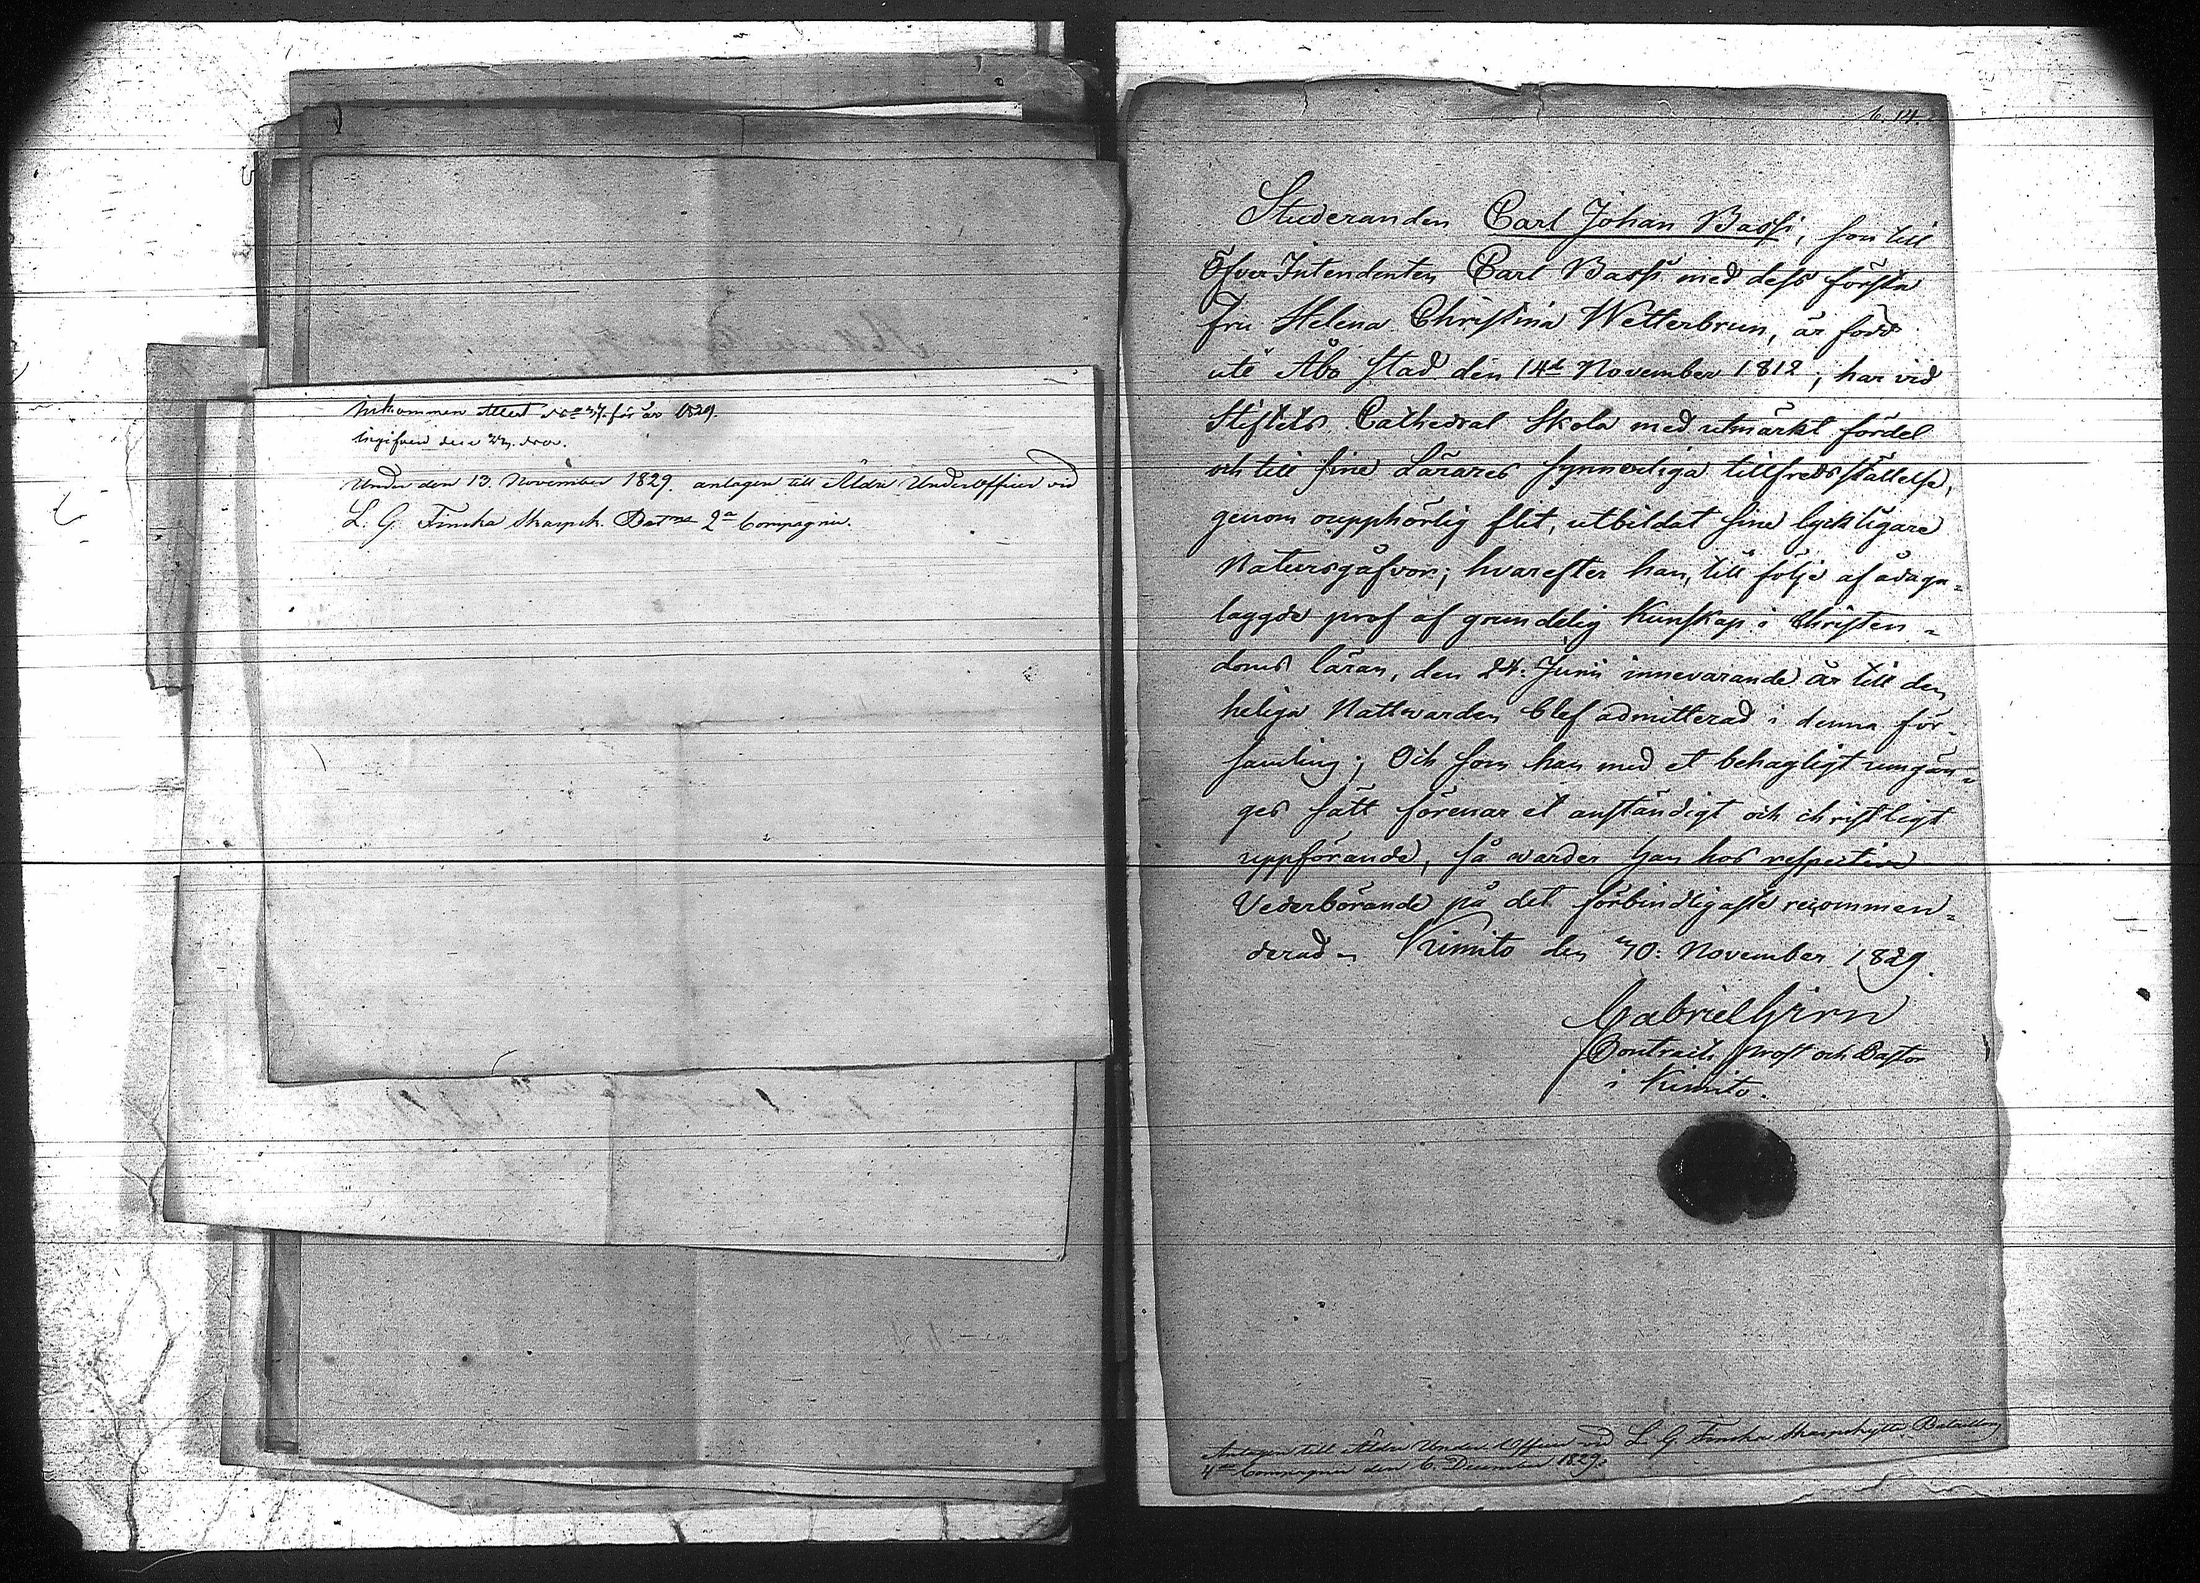 Inkommen Attest No 37. för år 1829.
Ingifven den
Under den 13. November 1829. antagen till Äldre Underofficer vid
L. G. Finska Skarpsk. Batns 2a Compagnie.
6. 14.
Studeranden Carl Johan Bassi, son till
Öfver Intendenten Carl Bassi med dess första
Fru Helena Christina Wetterbrun, är född
uti Åbo stad den 14de November 1812; har vid
Stiftets Cathedral Skola med utmärkt fördel
och till sine Lärares synnerliga tillfredsställelse,
genom oupphörlig flit, utbildat sine lyckligare
Natursgåfvor; hvarefter han, till följe af ådaga=
laggde prof af grundelig Kunskap i Christen=
doms läran, den 24. Junii innevarande år till den
heliga Nattvarden blef admitterad i denna för=
samling; Och som han med et behagligt umgän=
ges sätt förenar et anständigt och christligt
uppförande, så warder han hos respective
Vederbörande på det förbindligaste recommen=
derad. Kimito den 10: November 1829.
Gabriel Hirn
Contracts Prost och Pastor
i Kimito.
Antagen till Äldre Under Officer vid L. G. Finska Skarpskytte Bataillon
4de Compagnie den 6. December 1829.